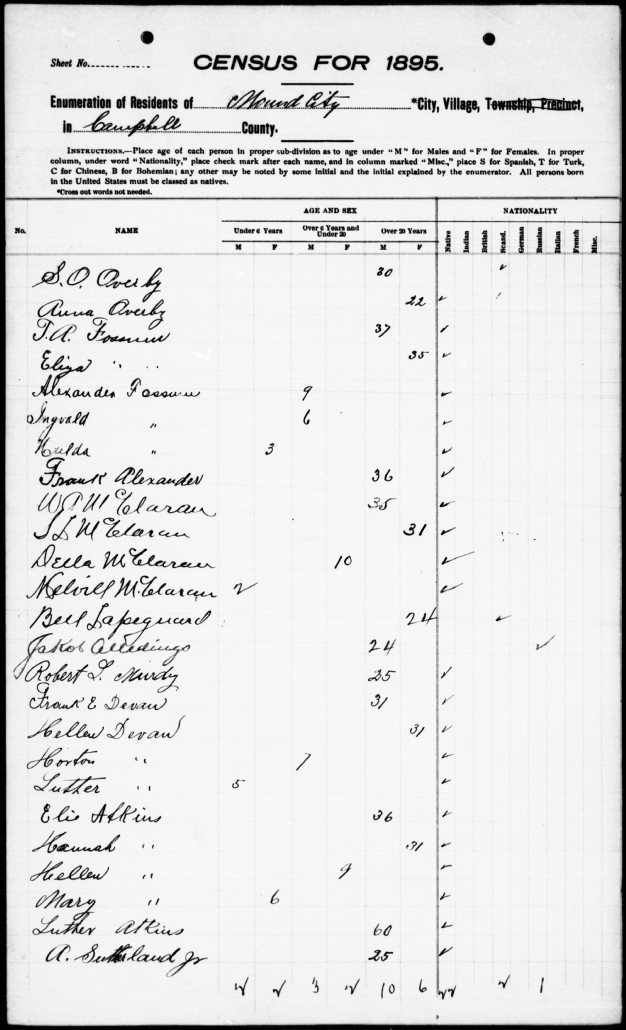 Sheet No.
CENSUS FOR 1895.
Enumeration of Residents of Mound City *City, Village, Township, Precinct,
in Campbell County.
INSTRUCTIONS.—Place age of each person in proper sub-division as to age under "M" for Males and "F" for Females. In proper
column, under word "Nationality," place check mark after each name, and in column marked "Misc.," place S for Spanish, T for Turk,
C for Chinese, B for Bohemian; any other may be noted by some initial and the initial explained by the enumerator. All persons born
in the United States must be classed as natives.
*Cross out words not needed.
AGE AND SEX NATIONALITY
No. NAME Under 6 Years Over 6 Years and Under 20 Over 20 Years Native Indian British Scand. German Russian Italian French Misc.
M F M F M F
S. O. Overby 30 ✓
Anna Overby 22 ✓
T. A. Fossum 37 ✓
Eliza " 35 ✓
Alexander Fossum 9 ✓
Ingvald " 6 ✓
Hulda " 3 ✓
Frank Alexander 36 ✓
McClaran 35 ✓
S L McClaran 31 ✓
Della McClaran 10 ✓
Melvill McClaran 2 ✓
Bell 24 ✓
Jakob 24 ✓
Robert L. Murdy 25 ✓
Frank E Devan 31 ✓
Hellen Devan 31 ✓
Horton " 7 ✓
Luther " 5 ✓
Elie Atkins 36 ✓
Hannah " 31 ✓
Hellen " 9 ✓
Mary " 6 ✓
Luther Atkins 60 ✓
A. Sutherland Jr 25 ✓
2 2 3 2 10 6 22 2 1